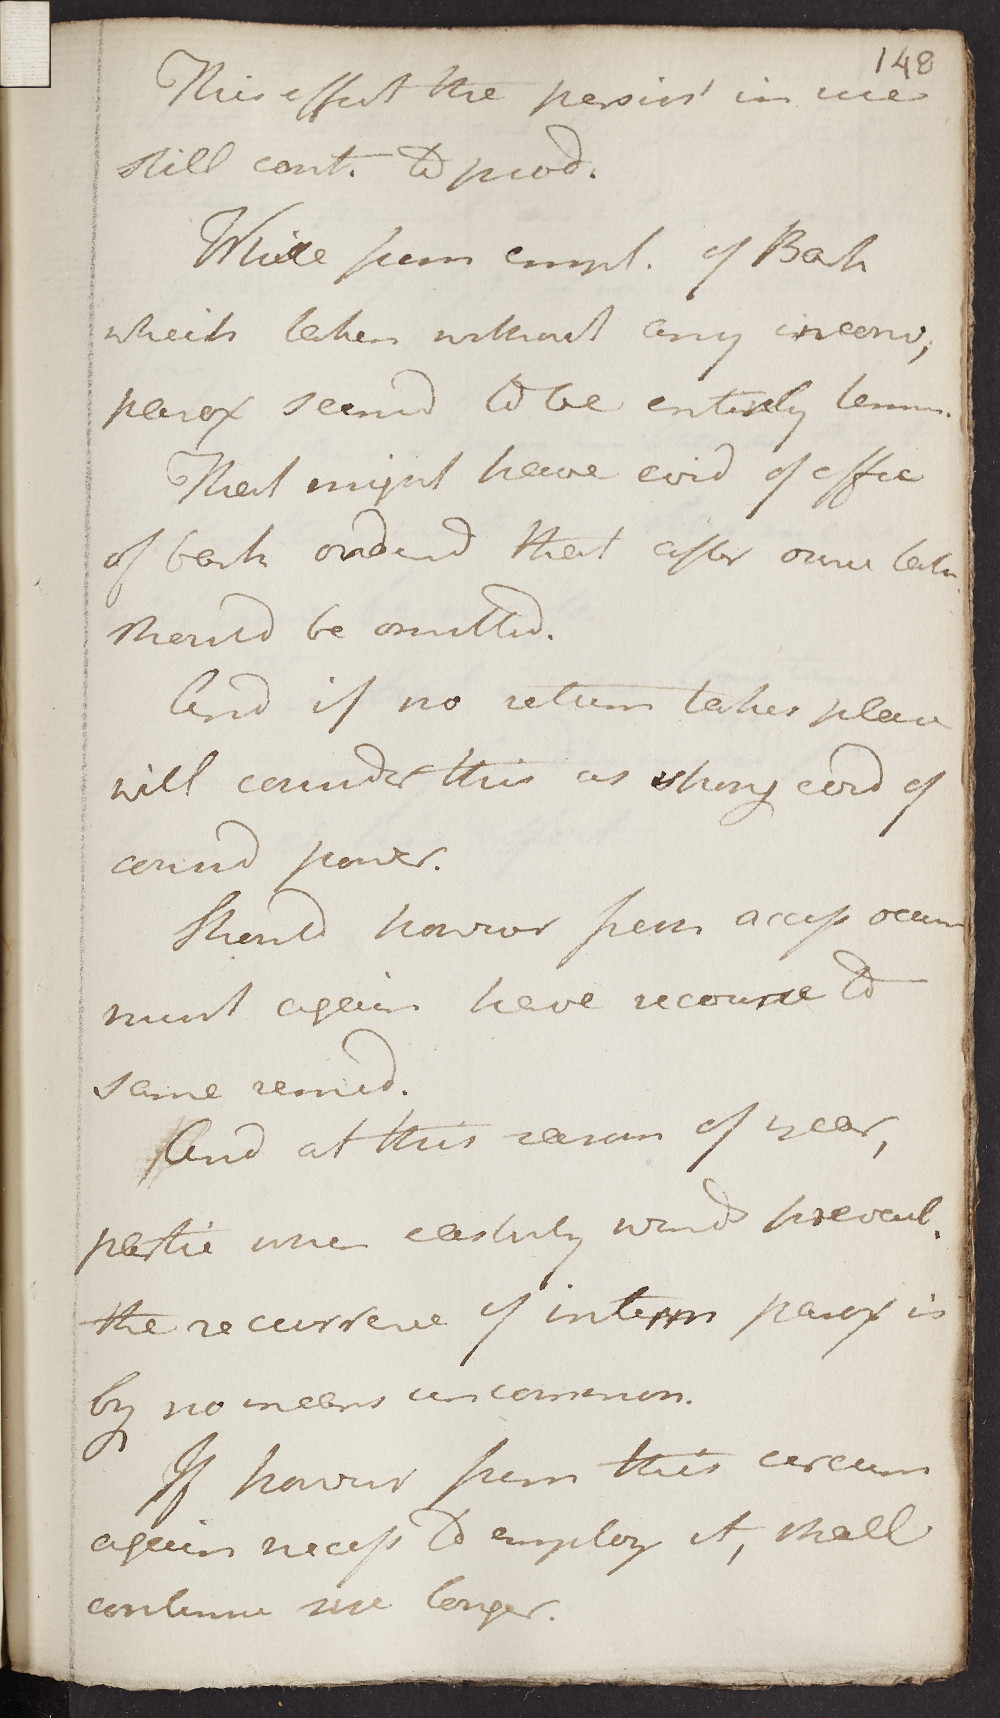 148
This effect the persist in use
still cont. to prod.
While from empl. of Bark
which taken without any inconv;
parox seemd to be entirely termin.
That might have evid of effic
of bark ordered that after once taken
should be omitted.
And if no return takes place
will consider this as strong evid of
considd power.
Should however from access occur
must again have recourse to
same remed.
And at this season of year,
partic when easterly winds prevail.
the recurrence of interm parox is
by no means uncommon.
If however from this circum
again necess to employ it, shall
continue use longer.